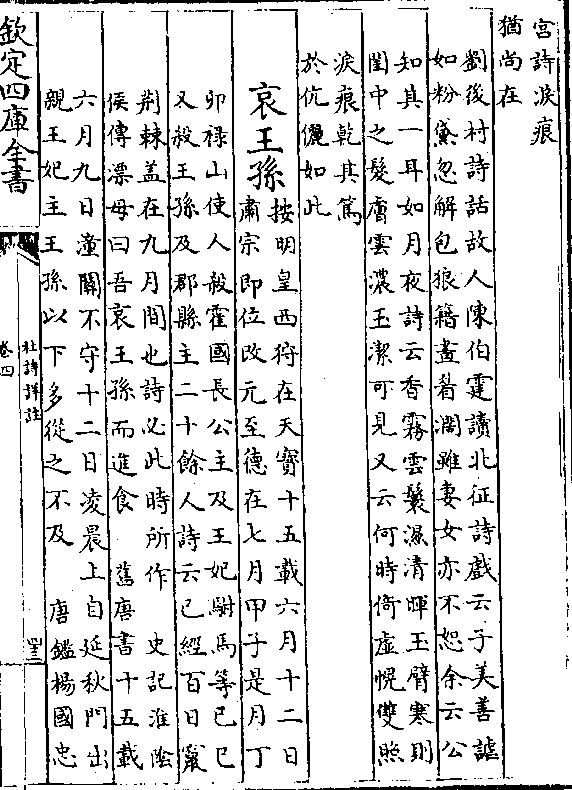 宮詩淚痕
猶尚在
劉後村詩話故人陳伯霆讀北征詩戲云子美善謔
如粉黛忽解包狼籍畫眉濶雖妻女亦不恕余云公
知其一耳如月夜詩云香霧雲鬟濕清暉玉臂寒則
閨中之髮膚雲濃玉潔可見又云何時倚虛幌雙照
淚痕乾其篤
於伉儷如此
哀王孫
按明皇西狩在天寶十五載六月十二日
肅宗即位改元至德在七月甲子是月丁
卯祿山使人殺霍國長公主及王妃駙馬等已巳
又殺王孫及郡縣主二十餘人詩云已經百日竄
荆棘盖在九月間也詩必此時所作 史記淮陰
侯傳漂母曰吾哀王孫而進食 舊唐書十五載
六月九日潼關不守十二日凌晨上自延秋門出
親王妃主王孫以下多從之不及 唐鑑楊國忠
欽定四庫全書
杜詩詳註
卷四